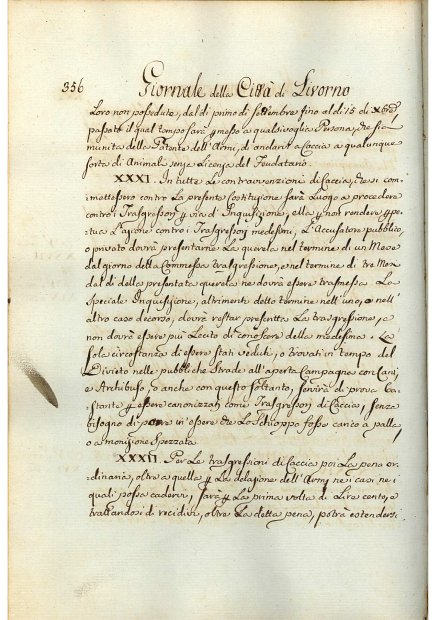 356 Giornale della Città di Livorno
Loro non possedute, dal dì primo di Settembre fino al dì 15 di
passato il qual tempo sarà messo a qualsivoglia Persona, che sia
munita della Patente dell'Armi, di andare a Caccia a qualunque
sorta di Animali senza Licenza del Feudatario.
XXXI. In tutte Le contravvenzioni di Caccia, che si com
mettessero contro La presente Costituzione sarà Luogo a procedere
contro i Trasgressori p via d'Inquisizione, e p non rendere ppe
tua L'azione contro i Trasgressori medesimi, L'Accusatore pubblico,
o privato dovrà presentarne La querela nel termine di un Mese
dal giorno della Commessa trasgressione, e nel termine di tre Mesi
dal dì della presentata querela ne dovrà essere trasmessa La
speciale Inquisizione, altrimenti detto termine nell'uno, o nell'
altro caso decorso, dovrà restar prescritta La trasgressione, e
non dovrà essere più Lecito di conoscere della medesima. La
sola circostanza di essere stati veduti, o trovati in tempo del
Divieto nelle pubbliche Strade all'aperta Campagna con Cani,
e Archibuso, o anche con questo soltanto, servirà di prova ba
stante p essere canonizzati come Trasgressori di Caccia, senza
bisogno di porre in essere che Lo Schioppo fosse carico a palle,
o a monizione Spezzata.
XXXII. Per Le trasgressioni di Caccia poi La pena or
dinaria, oltre a quella p La delazione dell'Armi ne i casi ne i
quali possa cadervi, sarà p La prima volta di Lire cento, e
trattandosi di recidivi, oltre La detta pena, potrà estendersi